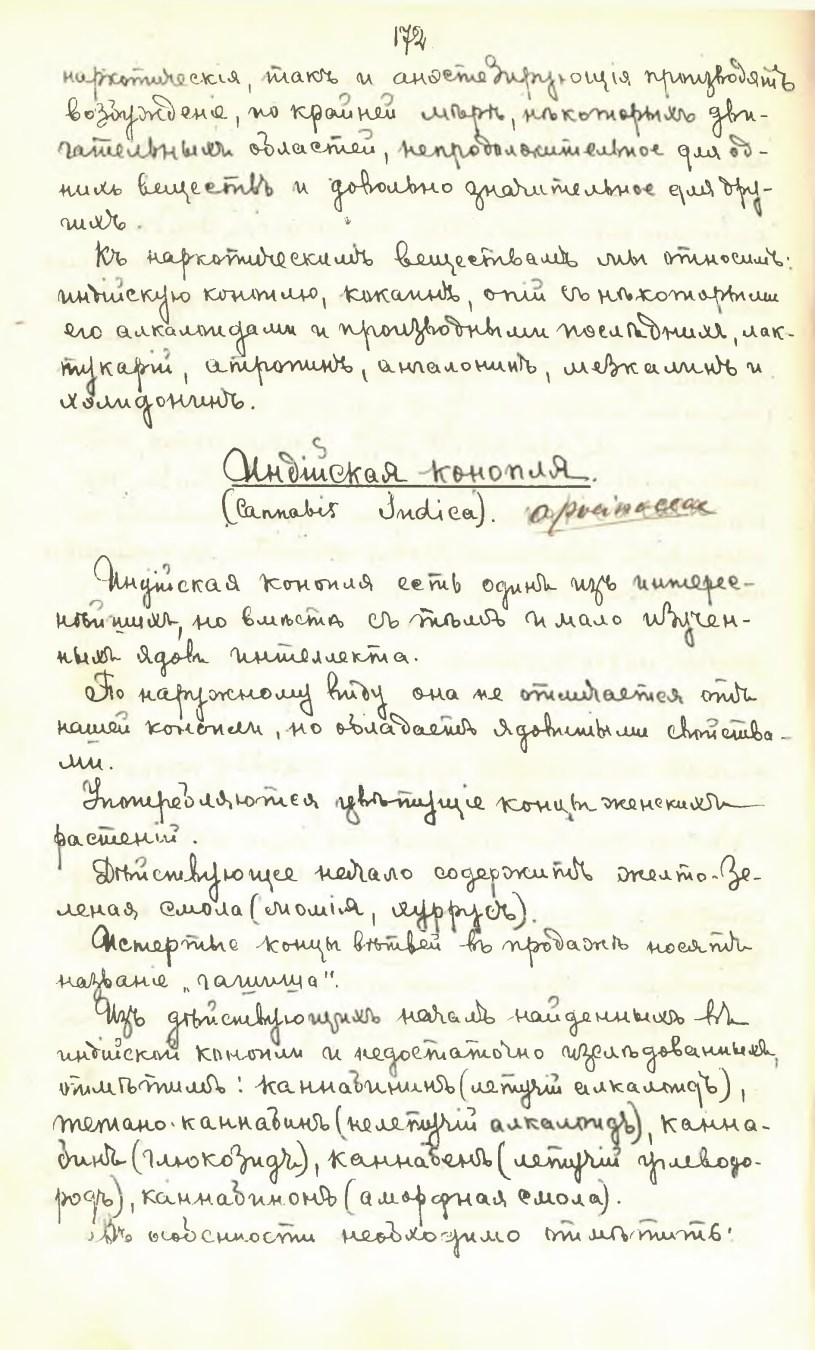 172
наркотическія, такъ и анестезирующія производятъ
возбужденіе, по крайней мѣрѣ, нѣкоторыхъ дви-
гательныхъ областей, непродолжительное для од-
нихъ веществъ и довольно значительное для дру-
гихъ.
Къ наркотическимъ веществамъ мы относимъ:
индійскую коноплю, кокаинъ, опій съ нѣкоторыми
его алкалоидами и производными послѣднихъ, лак-
тукарій, атропинъ, ангалонинъ, мезкалинъ и
хелидонинъ.
Индійская конопля.
(Cannabis Indica).
Индійская конопля есть одинъ изъ интерес-
нѣйшихъ, но вмѣстѣ съ тѣмъ и мало изучен-
ныхъ ядовъ интеллекта.
По наружному виду она не отличается отъ
нашей конопли, но обладаетъ ядовитыми свойства-
ми.
Употребляются цвѣтущіе концы женскихъ
растеній.
Дѣйствующее начало содержитъ желто-зе-
леная смола (момія, хуррусъ).
Истертые концы вѣтвей въ продажѣ носятъ
названіе „гашиша".
Изъ дѣйствующихъ началъ найденныхъ въ
индійской конопли и недостаточно изслѣдованныхъ,
отмѣтимъ: каннабининъ (летучій алкалоидъ),
тетано-каннабинъ (нелетучій алкалоидъ), канна-
бинъ (глюкозидъ), каннабенъ (летучій углеводо-
родъ), каннабинонъ (аморфная смола).
Въ особенности необходимо отмѣтить: